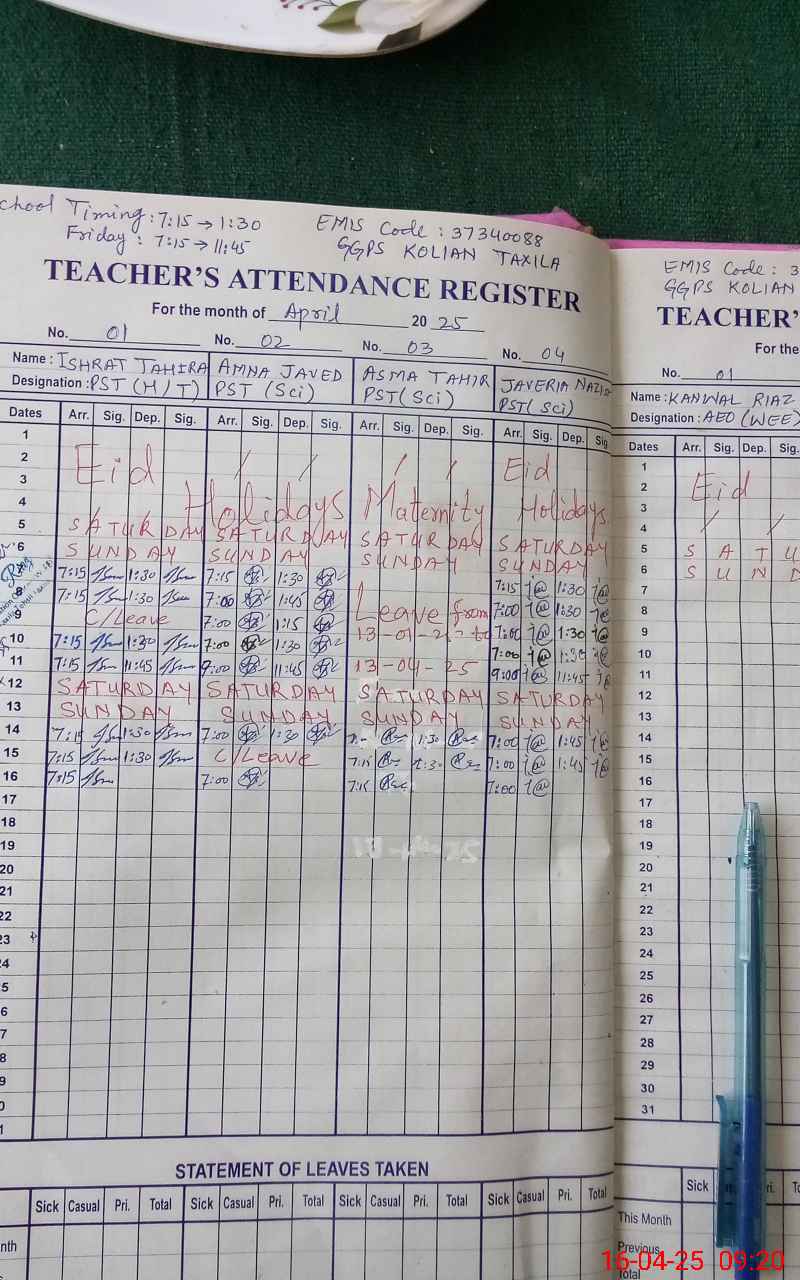 School Timing: 7:15 → 1:30
Friday: 7:15 → 11:45
EMIS Code: 37340088
GGPS KOLIAN TAXILA
TEACHER'S ATTENDANCE REGISTER
For the month of April 2025
No. 01 No. 02 No. 03 No. 04
Name: ISHRAT TAHIRA AMNA JAVED ASMA TAHIR JAVERIA
Designation: PST (H/T) PST (Sci) PST (Sci) PST (Sci)
Dates Arr. Sig. Dep. Sig. Arr. Sig. Dep. Sig. Arr. Sig. Dep. Sig. Arr. Sig. Dep. Sig
1
2 Eid / / / / Eid
3
4 Holidays Maternity Holidays
5 SATURDAY SATURDAY SATURDAY SATURDAY
6 SUNDAY SUNDAY SUNDAY SUNDAY
7:15 1:30 7:15 1:30 7:15 1:30
8 7:15 1:30 7:00 1:45 Leave from 7:00 1:30
9 C/Leave 7:00 1:15 13-01- to 7:00 1:30
10 7:15 1:30 7:00 1:30 7:00 1:30
11 7:15 11:45 9:00 11:45 13-04-25 9:00 11:45
12 SATURDAY SATURDAY SATURDAY SATURDAY
13 SUNDAY SUNDAY SUNDAY SUNDAY
14 7:15 1:30 7:00 1:30 1:30 7:00 1:45
15 7:15 1:30 C/Leave 7:15 1:30 7:00 1:45
16 7:15 7:00 7:15 7:00
17
18
19
20
21
22
23
24
5
6
7
8
9
0
1
STATEMENT OF LEAVES TAKEN
Sick Casual Pri. Total Sick Casual Pri. Total Sick Casual Pri. Total Sick Casual Pri. Total
nth
EMIS Code: 3
GGPS KOLIAN
TEACHER'
For the
No. 01
Name: KANWAL RIAZ
Designation: AEO (WEE)
Dates Arr. Sig. Dep. Sig.
1
2 Eid
3
4 / /
5 S A T U
6 S U N D
7
8
9
10
11
12
13
14
15
16
17
18
19
20
21
22
23
24
25
26
27
28
29
30
31
Sick ri. To
This Month
Previous
Total
16-04-25 09:20